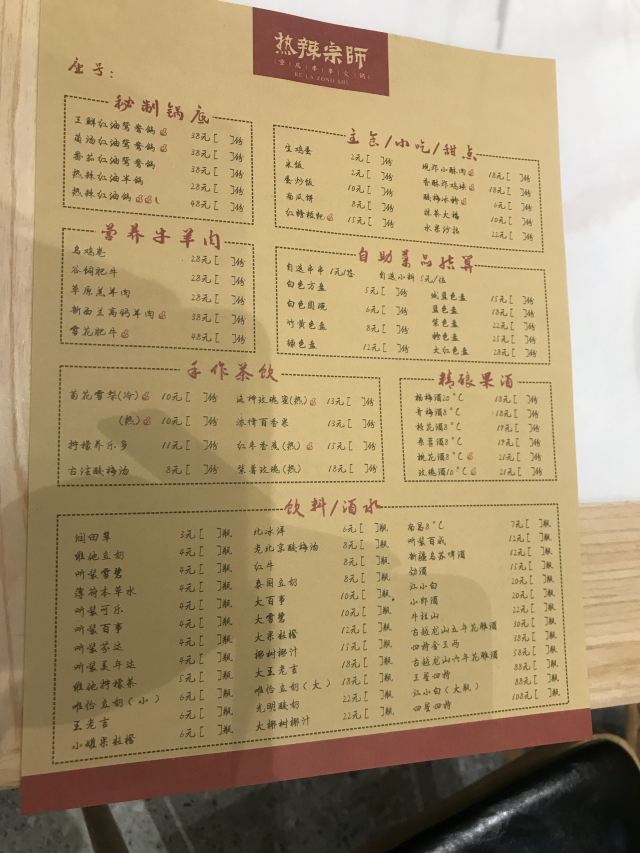 热辣宗師
RE LA ZONG SHI
座号:
秘制锅底
三鲜红油鸳鸯锅 38元[ ]份
菌汤红油鸳鸯锅 38元[ ]份
番茄红油鸳鸯锅 38元[ ]份
热辣红油半锅 28元[ ]份
热辣红油锅 48元[ ]份
主食/小吃/甜点
生鸡蛋 2元[ ]份
米饭 2元[ ]份
蛋炒饭 10元[ ]份
南瓜饼 8元[ ]份
红糖糍粑 15元[ ]份
现炸小酥肉 18元[ ]份
香酥炸鸡块 18元[ ]份
酸梅冰粉 6元[ ]份
抹茶大福 10元[ ]份
水果沙拉 22元[ ]份
营养牛羊肉
乌鸡卷 28元[ ]份
谷饲肥牛 28元[ ]份
草原羔羊肉 28元[ ]份
新西兰高钙羊肉 38元[ ]份
雪花肥牛 48元[ ]份
自助菜品结算
自选串串 1元/签 自选小料 5元/位
白色方盘 5元[ ]份
白色圆碗 6元[ ]份
竹黄色盘 8元[ ]份
绿色盘 12元[ ]份
咸蓝色盘 15元[ ]份
蓝色盘 18元[ ]份
紫色盘 22元[ ]份
粉色盘 25元[ ]份
大红色盘 28元[ ]份
手作茶饮
菊花雪梨(冷) 10元[ ]份
(热) 10元[ ]份
柠檬养乐多 15元[ ]份
古法酸梅汤 8元[ ]份
玫瑰蜜(热) 13元[ ]份
百香果 13元[ ]份
红枣香蕉(热) 15元[ ]份
紫薯玫瑰(热) 18元[ ]份
精酿果酒
杨梅酒20°C 18元[ ]
青梅酒8°C 18元[ ]
桂花酒8°C 19元[ ]
8°C 19元[ ]
桃花酒8°C 21元[ ]
玫瑰酒10°C 21元[ ]
饮料/酒水
润田翠 3元[ ]瓶
维他豆奶 4元[ ]瓶
听装雪碧 4元[ ]瓶
薄荷本草水 4元[ ]瓶
听装可乐 4元[ ]瓶
听装百事 4元[ ]瓶
听装芬达 4元[ ]瓶
听装美年达 4元[ ]瓶
维他柠檬茶 5元[ ]瓶
唯怡豆奶(小) 6元[ ]瓶
王老吉 6元[ ]瓶
小罐果粒橙 6元[ ]瓶
北冰洋 6元[ ]瓶
老北京酸梅汤 8元[ ]瓶
红牛 8元[ ]瓶
泰国豆奶 8元[ ]瓶
大百事 10元[ ]瓶
大雪碧 10元[ ]瓶
大果粒橙 12元[ ]瓶
椰树椰汁 15元[ ]瓶
大王老吉 18元[ ]瓶
唯怡豆奶(大) 18元[ ]瓶
光明酸奶 22元[ ]瓶
大椰树椰汁 22元[ ]瓶
南昌8°C 7元[ ]瓶
听装百威 12元[ ]瓶
新疆乌苏啤酒 12元[ ]瓶
劲酒 15元[ ]瓶
江小白 20元[ ]瓶
小郎酒 20元[ ]瓶
牛栏山 22元[ ]瓶
古越龙山五年花雕酒 30元[ ]瓶
四特金三两 38元[ ]瓶
古越龙山六年花雕酒 58元[ ]瓶
三星四特 88元[ ]瓶
江小白(大瓶) 88元[ ]瓶
四星四特 108元[ ]瓶